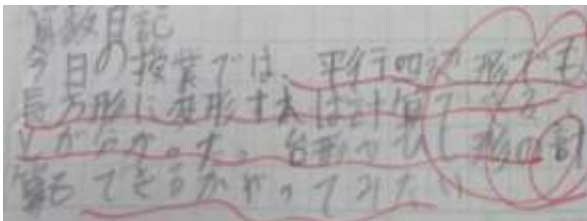 算数日記
今日の授業では、平行四辺形でも
長方形に変形すれば計算できるこ
とが分かった。台形やひし形の計
算もできるかやってみたい